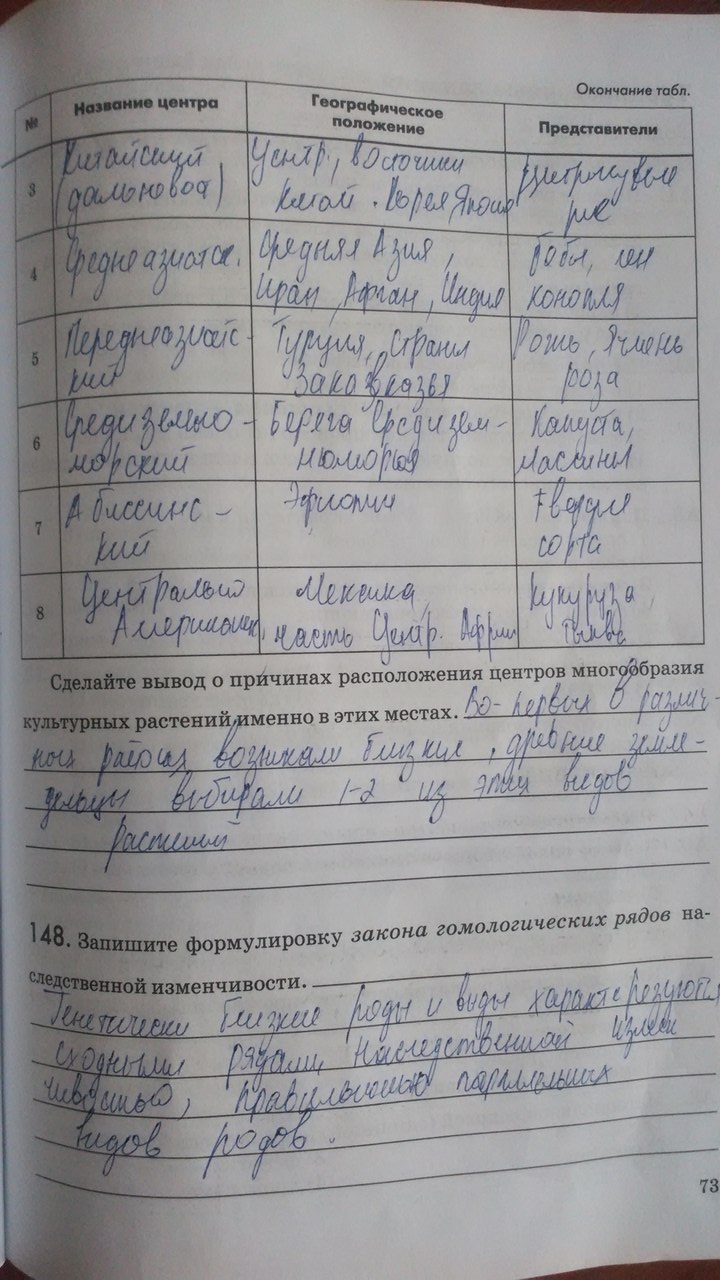 Окончание табл.
№ Название центра Географическое положение Представители
3 Китайский Центр, восточный
Китай. Корея Япония
4 Среднеазиатск. Средняя Азия, Бобы, лен
Иран, Афган, Индия конопля
5 Переднеазиатс- Турция, Страны Рожь, Ячмень
кий Закавказья роза
6 Средиземно- Берега Средизем- Капуста,
морский номорья маслины
7 Абиссинс- Эфиопии твердые
кий сорта
8 Центрально Мексика, кукуруза,
Американск. часть Центр. тыква
Сделайте вывод о причинах расположения центров многообразия
культурных растений именно в этих местах. Во-первых в различ-
ных возникали близкие, древние земле-
дельцы выбирали 1-2 из этих видов
растений
148. Запишите формулировку закона гомологических рядов на-
следственной изменчивости.
Генетически близкие роды и виды характерезуются
сходными рядами наследственной измен
чивостью, параллельных
видов родов.
73